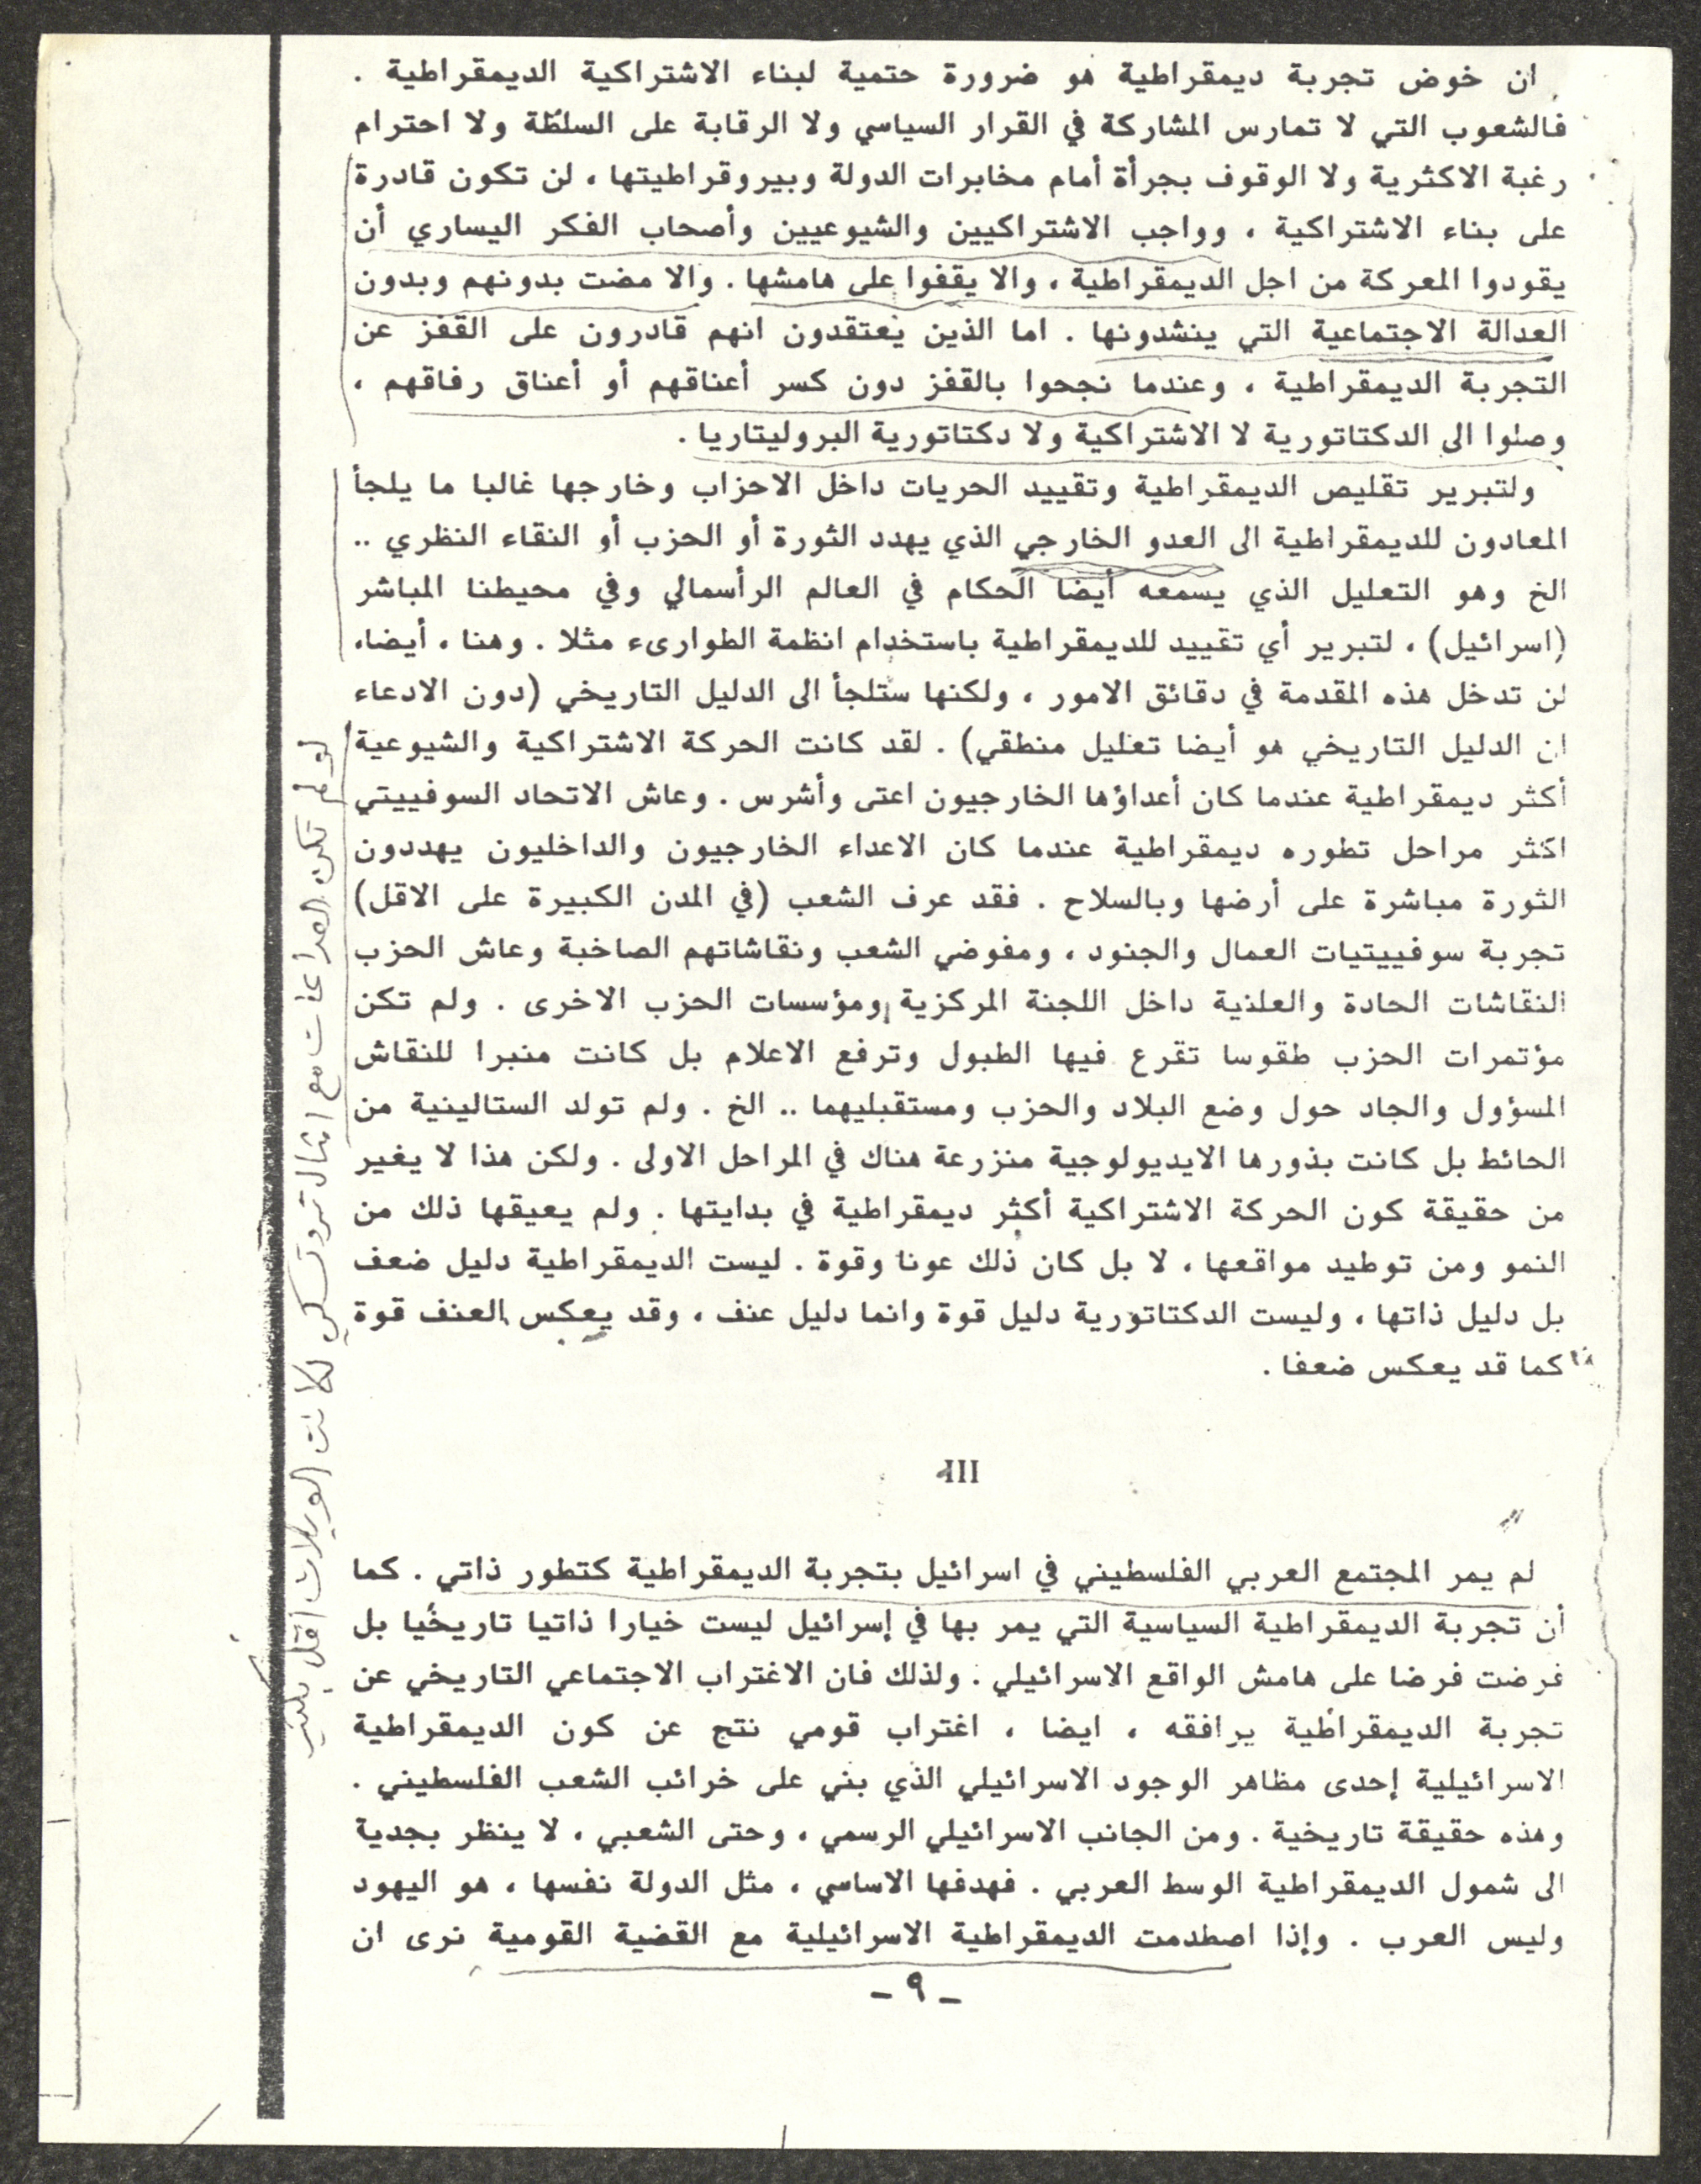 ان خوض تجربة ديمقراطية هو ضرورة حتمية لبناء الاشتراكية الديمقراطية .
فالشعوب التي لا تمارس المشاركة في القرار السياسي ولا الرقابة على السلطة ولا احترام
رغبة الاكثرية ولا الوقوف بجرأة أمام مخابرات الدولة وبيروقراطيتها ، لن تكون قادرة
على بناء الاشتراكية ، وواجب الاشتراكيين والشيوعيين وأصحاب الفكر اليساري أن
يقودوا المعركة من اجل الديمقراطية ، والا يقفوا على هامشها . والا مضت بدونهم وبدون
العدالة الاجتماعية التي ينشدونها . اما الذين يعتقدون انهم قادرون على القفز عن
التجربة الديمقراطية ، وعندما نجحوا بالقفز دون كسر أعناقهم أو أعناق رفاقهم ،
وصلوا الى الدكتاتورية لا الاشتراكية ولا دكتاتورية البروليتاريا .
ولتبرير تقليص الديمقراطية وتقييد الحريات داخل الاحزاب وخارجها غالبا ما يلجأ
المعادون للديمقراطية الى العدو الخارجي الذي يهدد الثورة أو الحزب أو النقاء النظري ..
الخ وهو التعليل الذي يسمعه أيضا الحكام في العالم الرأسمالي وفي محيطنا المباشر
(اسرائيل) ، لتبرير أي تقييد للديمقراطية باستخدام انظمة الطوارىء مثلا . وهنا ، أيضا،
لن تدخل هذه المقدمة في دقائق الامور ، ولكنها ستلجأ الى الدليل التاريخي (دون الادعاء
ان الدليل التاريخي هو أيضا تعليل منطقي) . لقد كانت الحركة الاشتراكية والشيوعية
أكثر ديمقراطية عندما كان أعداؤها الخارجيون اعتى وأشرس . وعاش الاتحاد السوفييتي
اكثر مراحل تطوره ديمقراطية عندما كان الاعداء الخارجيون والداخليون يهددون
الثورة مباشرة على أرضها وبالسلاح . فقد عرف الشعب (في المدن الكبيرة على الاقل)
تجربة سوفييتيات العمال والجنود ، ومفوضي الشعب ونقاشاتهم الصاخبة وعاش الحزب
النقاشات الحادة والعلنية داخل اللجنة المركزية ومؤسسات الحزب الاخرى . ولم تكن
مؤتمرات الحزب طقوسا تقرع فيها الطبول وترفع الاعلام بل كانت منبرا للنقاش
المسؤول والجاد حول وضع البلاد والحزب ومستقبليهما .. الخ . ولم تولد الستالينية من
الحائط بل كانت بذورها الايديولوجية منزرعة هناك في المراحل الاولى . ولكن هذا لا يغير
من حقيقة كون الحركة الاشتراكية أكثر ديمقراطية في بدايتها . ولم يعيقها ذلك من
النمو ومن توطيد مواقعها ، لا بل كان ذلك عونا وقوة . ليست الديمقراطية دليل ضعف
بل دليل ذاتها ، وليست الدكتاتورية دليل قوة وانما دليل عنف ، وقد يعكس العنف قوة
كما قد يعكس ضعفا .
III
لم يمر المجتمع العربي الفلسطيني في اسرائيل بتجربة الديمقراطية كتطور ذاتي . كما
أن تجربة الديمقراطية السياسية التي يمر بها في إسرائيل ليست خيارا ذاتيا تاريخيا بل
فرضت فرضا على هامش الواقع الاسرائيلي . ولذلك فان الاغتراب الاجتماعي التاريخي عن
تجربة الديمقراطية يرافقه ، ايضا ، اغتراب قومي نتج عن كون الديمقراطية
الاسرائيلية إحدى مظاهر الوجود الاسرائيلي الذي بني على خرائب الشعب الفلسطيني .
وهذه حقيقة تاريخية . ومن الجانب الاسرائيلي الرسمي ، وحتى الشعبي ، لا ينظر بجدية
الى شمول الديمقراطية الوسط العربي . فهدفها الاساسي ، مثل الدولة نفسها ، هو اليهود
وليس العرب . وإذا اصطدمت الديمقراطية الاسرائيلية مع القضية القومية نرى ان
- ٩ -
لو لم تكن الصراعات مع امثال تروتسكي لكانت الويلات اقل بكثير